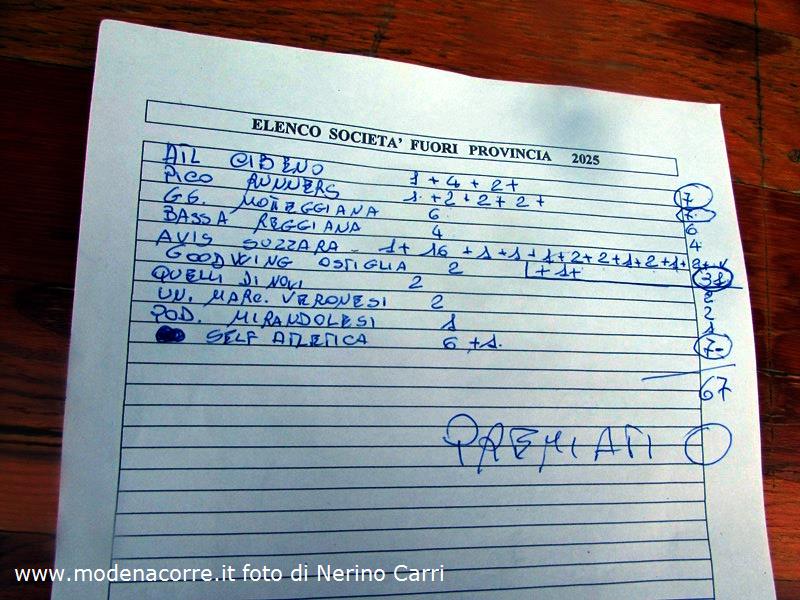 ELENCO SOCIETA' FUORI PROVINCIA 2025
ATL CIBENO 1 + 4 + 2 + 7
PICO RUNNERS 1 + 2 + 2 + 2 + 7
GS. MOTEGGIANA 6 6
BASSA REGGIANA 4 4
AVIS SUZZARA 1+ 16 + 1 + 1 + 1 + 2 + 2 + 1 + 2 + 1 +
+ 1+ 38
GOODWING OSTIGLIA 2 2
QUELLI DI NOVI 2 2
UN. MARC. VERONESI 2
POD. MIRANDOLESI 1 1
SELF ATLETICA 6 + 1. 7-
67
PREMIATI
www.modenacorre.it foto di Nerino Carri